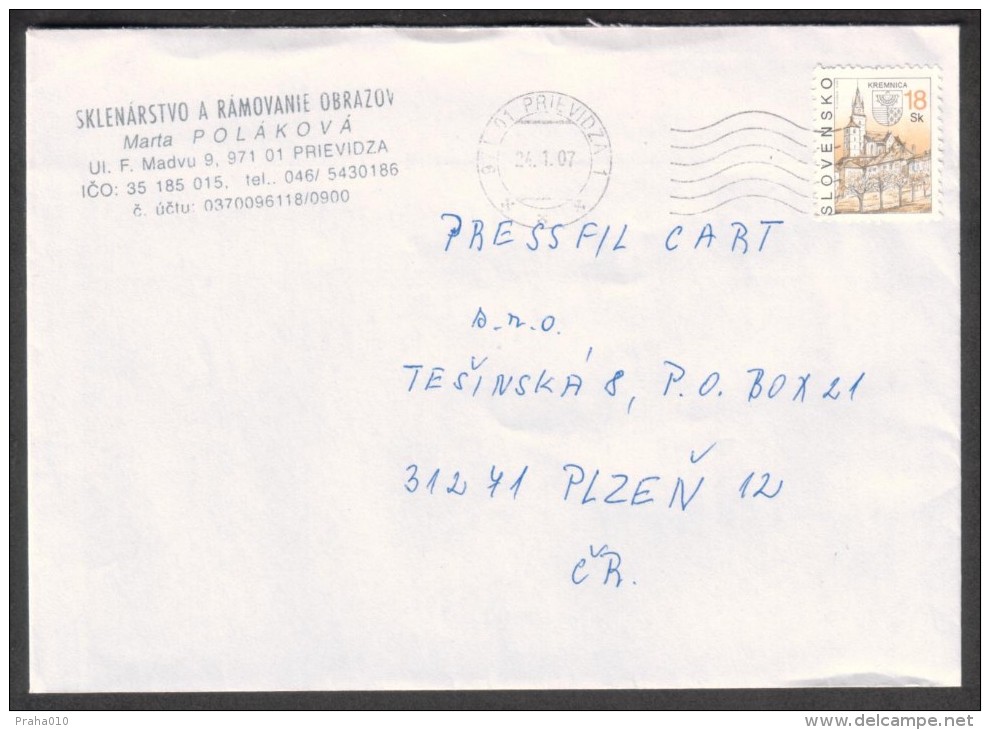 SKLENÁRSTVO A RÁMOVANIE OBRAZOV
Marta POLÁKOVÁ
Ul. F. Madvu 9, 971 01 PRIEVIDZA
IČO: 35 185 015, tel.. 046/ 5430186
č. účtu: 0370096118/0900
971 01 PRIEVIDZA 1
24.1.07
SLOVENSKO
KREMNICA
18
Sk
PRESSFIL CART
s.r.o.
TEŠINSKÁ 8, P.O. BOX 21
31271 PLZEŇ 12
ČR.
Praha010
www.delcampe.net